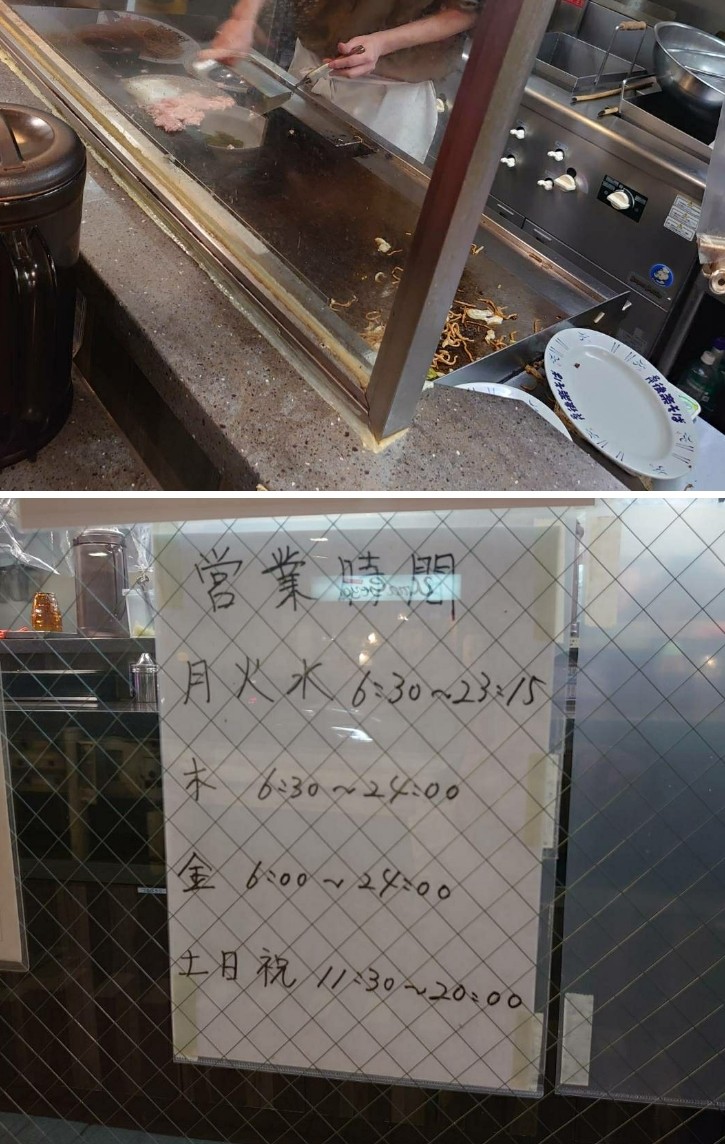 営業時間
月火水 6:30~23:15
木 6:30~24:00
金 6:00~24:00
土日祝 11:30~20:00